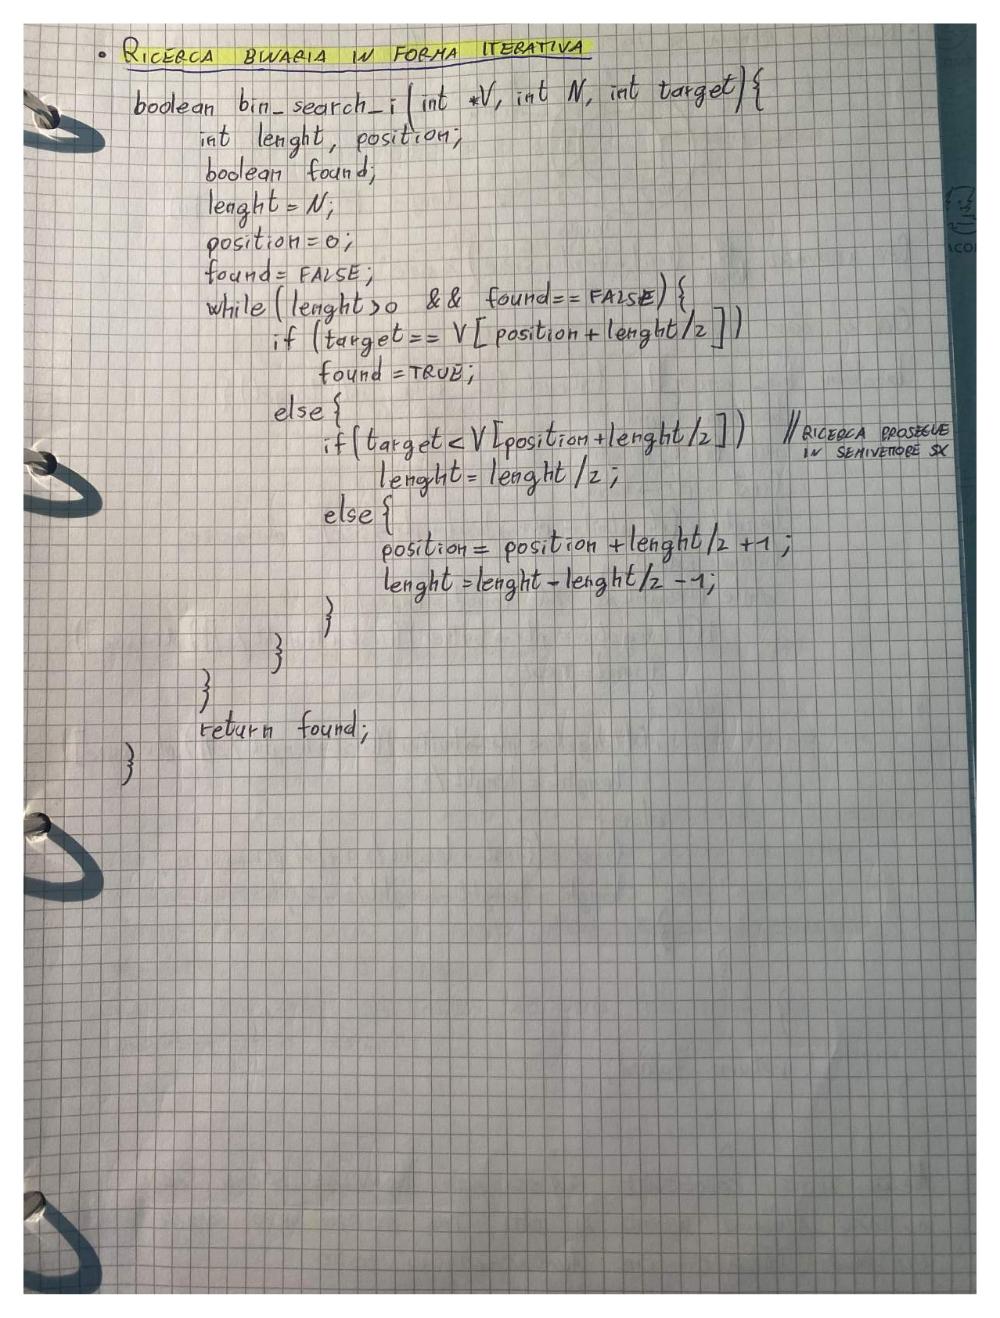 • RICERCA BINARIA IN FORMA ITERATIVA
boolean bin_search_i(int *V, int N, int target){
int lenght, position;
boolean found;
lenght = N;
position = 0;
found = FALSE;
while (lenght>0 && found== FALSE){
if (target== V[position+lenght/2])
found = TRUE;
else{
if(target<V[position+lenght/2]) //RICERCA PROSEGUE
IN SEMIVETTORE SX
lenght = lenght/2;
else{
position = position + lenght/2 +1;
lenght = lenght - lenght/2 -1;
}
}
}
return found;
}